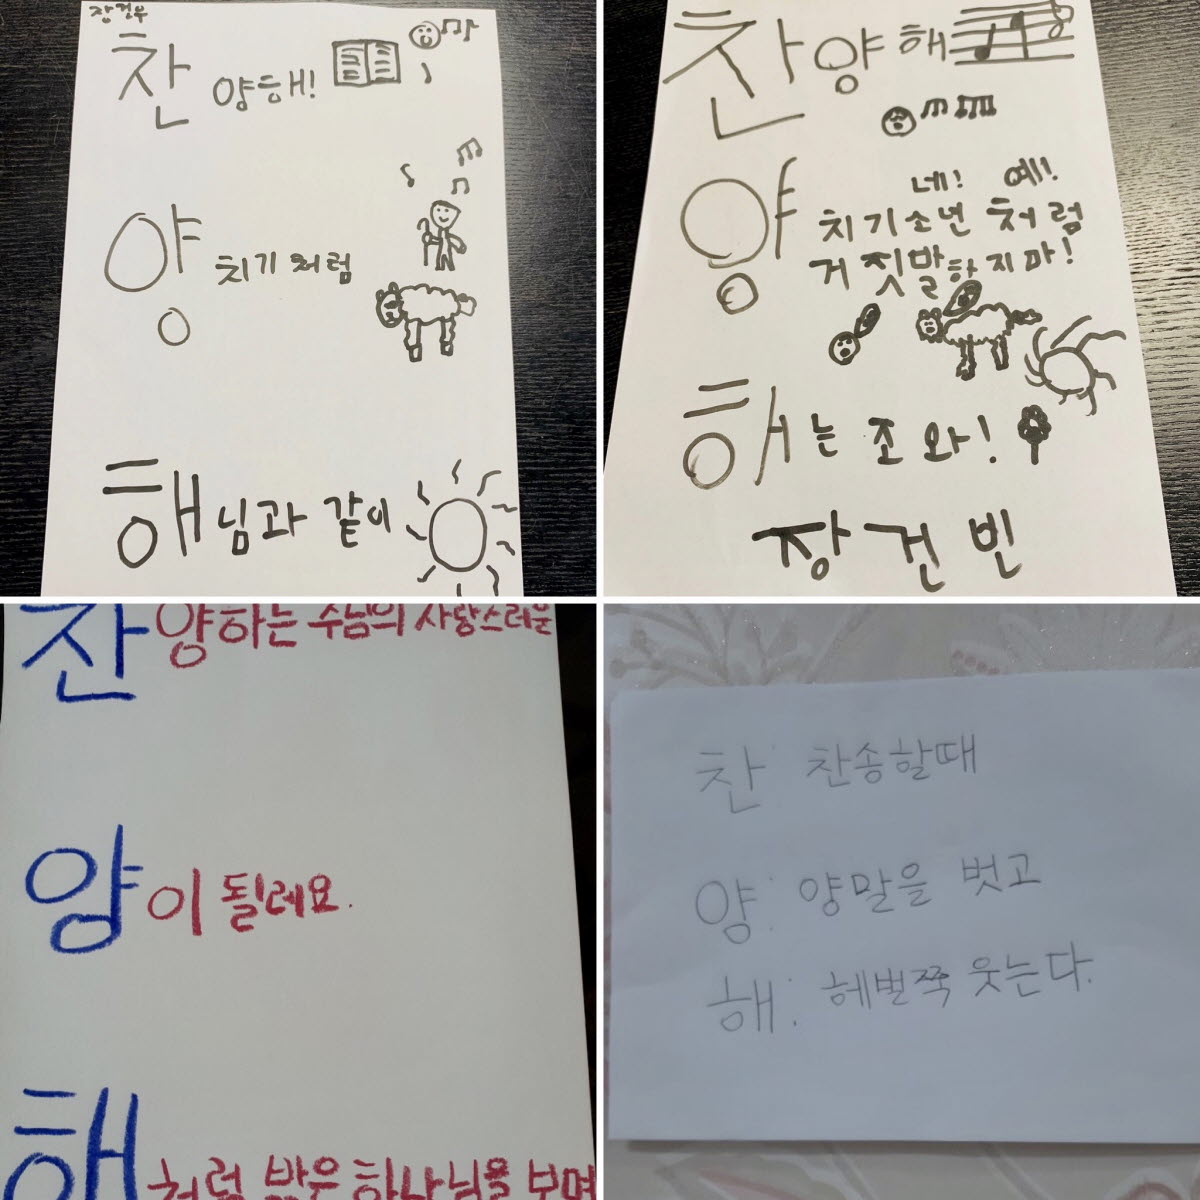 장건우
찬양해!
양치기처럼
해님과 같이
찬양해
네! 예!
양치기소년 처럼
거짓말하지마!
해는 조와!
장건빈
찬양하는 주님의 사랑스러운
양이 될레요.
해처럼 밝은 하나님을 보며
찬: 찬송할때
양: 양말을 벗고
해: 헤벌쭉 웃는다.